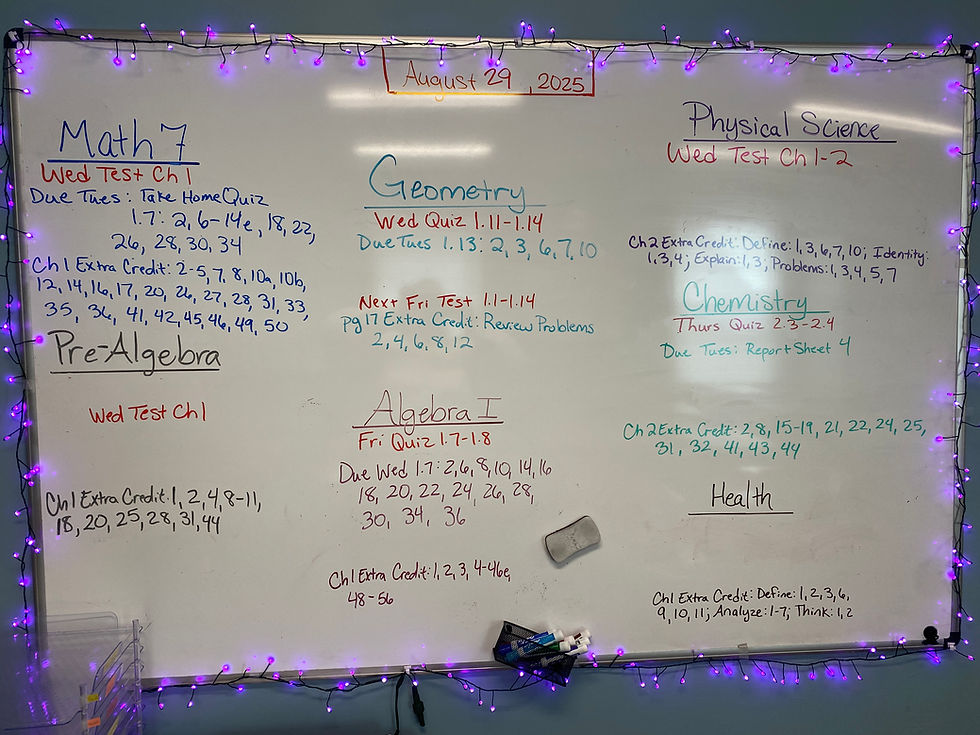 August 29, 2025
Math 7
Wed Test Ch 1
Due Tues: Take Home Quiz
1.7: 2, 6-14e, 18, 22,
26, 28, 30, 34
Ch 1 Extra Credit: 2-5, 7, 8, 10a, 10b,
12, 14, 16, 17, 20, 26, 27, 28, 31, 33,
35, 36, 41, 42, 45, 46, 49, 50
Pre-Algebra
Wed Test Ch 1
Ch 1 Extra Credit: 1, 2, 4, 8-11,
18, 20, 25, 28, 31, 44
Geometry
Wed Quiz 1.11-1.14
Due Tues 1.13: 2, 3, 6, 7, 10
Next Fri Test 1.1-1.14
pg 17 Extra Credit: Review Problems
2, 4, 6, 8, 12
Algebra I
Fri Quiz 1.7-1.8
Due Wed 1.7: 2, 6, 8, 10, 14, 16
18, 20, 22, 24, 26, 28,
30, 34, 36
Ch 1 Extra Credit: 1, 2, 3, 4-46e,
48-56
Physical Science
Wed Test Ch 1-2
Ch 2 Extra Credit: Define: 1, 3, 6, 7, 10; Identity:
1, 3, 4; Explain: 1, 3; Problems: 1, 3, 4, 5, 7
Chemistry
Thurs Quiz 2.3-2.4
Due Tues: Report Sheet 4
Ch 2 Extra Credit: 2, 8, 15-19, 21, 22, 24, 25,
31, 32, 41, 43, 44
Health
Ch 1 Extra Credit: Define: 1, 2, 3, 6,
9, 10, 11; Analyze: 1-7; Think: 1, 2